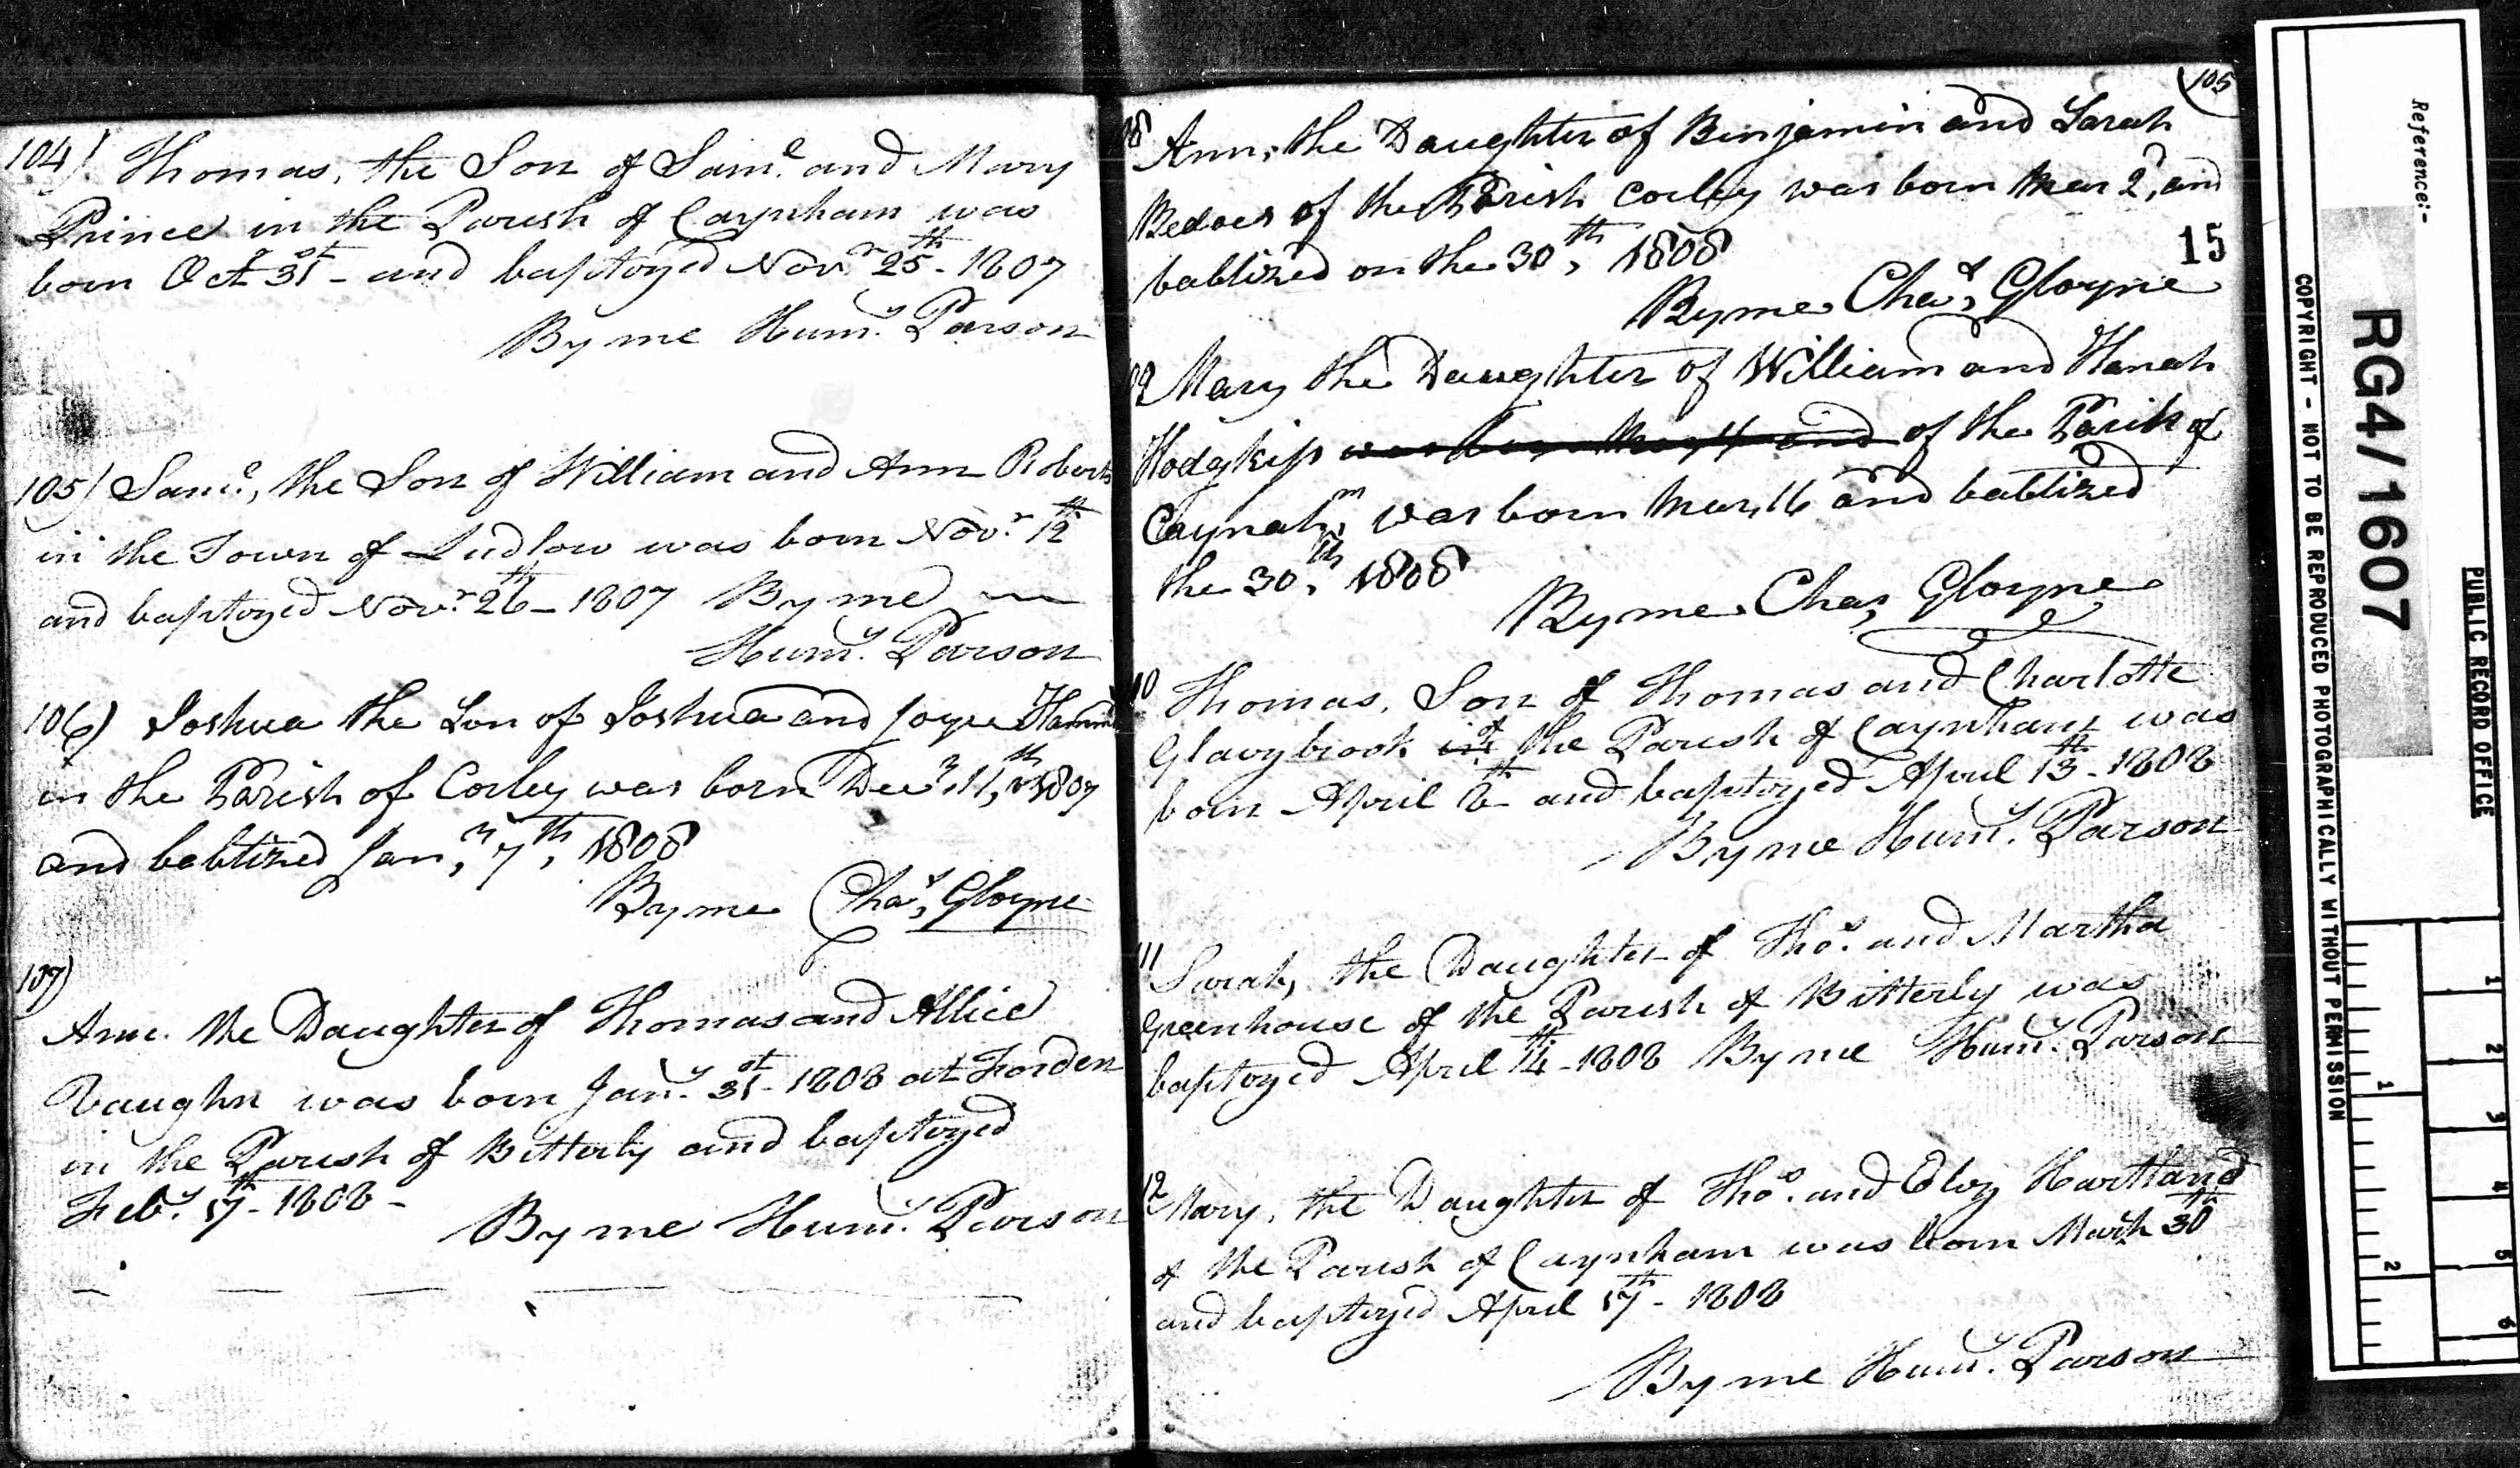 104) Thomas, the Son of Saml. and Mary
Prince in the Parish of Caynham was
born Octr 31st - and baptized Novr 25th - 1807
By me Humy. Parson
105) Saml., the Son of William and Ann Roberts
in the Town of Ludlow was born Novr. 12th
and baptized Novr. 26th - 1807 By me
Humy. Parson
106) Joshua the Son of Joshua and Joyce
in the Parish of Corley was born Decr, 11th, 1807
and babtized Janry, 7th, 1808
By me Chas, Gloyne
107)
Ann. the Daughter of Thomas and Allice
Vaughn was born Jany. 31st - 1808 at Forden
in the Parish of Bitterly and baptized
Feby. 17th - 1808 -
By me Humy. Parson
105
08 Ann, the Daughter of Binjamin and Sarah
Bedoes of the Parish Corley was born Mar 2d, and
babtized on the 30th, 1808
15
By me Chas, Gloyne
09 Mary the Daughter of William and Hanah
Hodgkiss was born of the Parish of
Caynahm, was born Mar, 16 and babtized
the 30th, 1808
By me Chas, Gloyne
10 Thomas, Son of Thomas and Charlotte
Glazybrook in of the Parish of Caynham was
born April and baptized April 13th - 1808
By me Humy. Parson
11 Sarah, the Daughter of Thos. and Martha
Greenhouse of the Parish of Bitterly was
baptized April 14th - 1808 By me Humy. Parson
12 Mary, the Daughter of Thos. and Hartland
of the Parish of Caynham was born March 30th
and baptized April 17th - 1808
By me Humy. Parson
Reference:-
RG4/1607
PUBLIC RECORD OFFICE
COPYRIGHT - NOT TO BE REPRODUCED PHOTOGRAPHICALLY WITHOUT PERMISSION
1
2
3
4
5
6
1
2